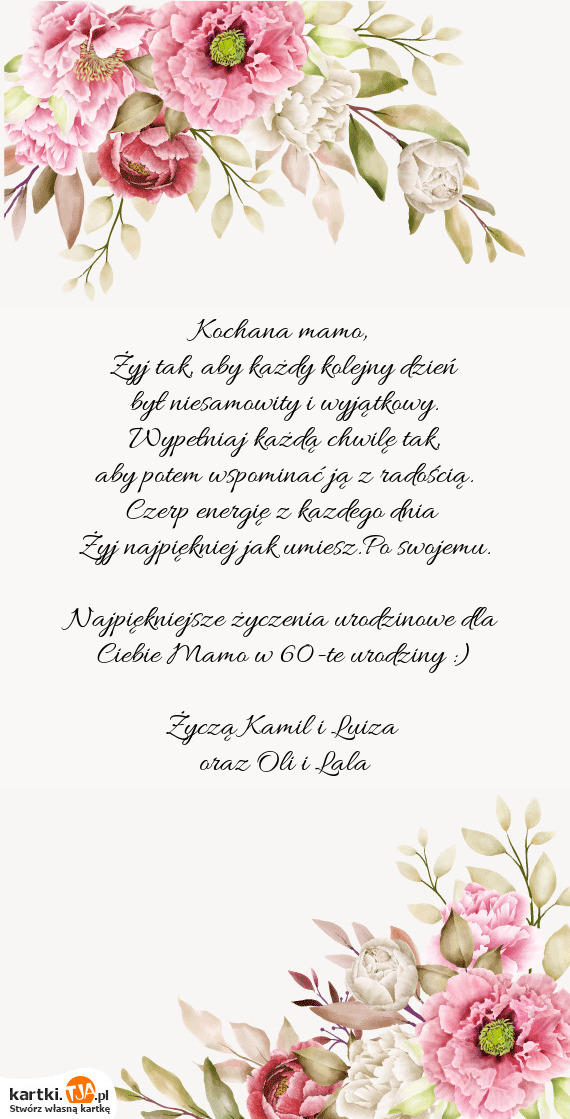 Kochana mamo,
Żyj tak, aby każdy kolejny dzień
był niesamowity i wyjątkowy.
Wypełniaj każdą chwilę tak,
aby potem wspominać ją z radością.
Czerp energię z kazdego dnia
Żyj najpiękniej jak umiesz.Po swojemu.
Najpiękniejsze życzenia urodzinowe dla
Ciebie Mamo w 60-te urodziny :)
Życzą Kamil i Luiza
oraz Oli i Lala
kartki.TJA.pl
Stwórz własną kartkę